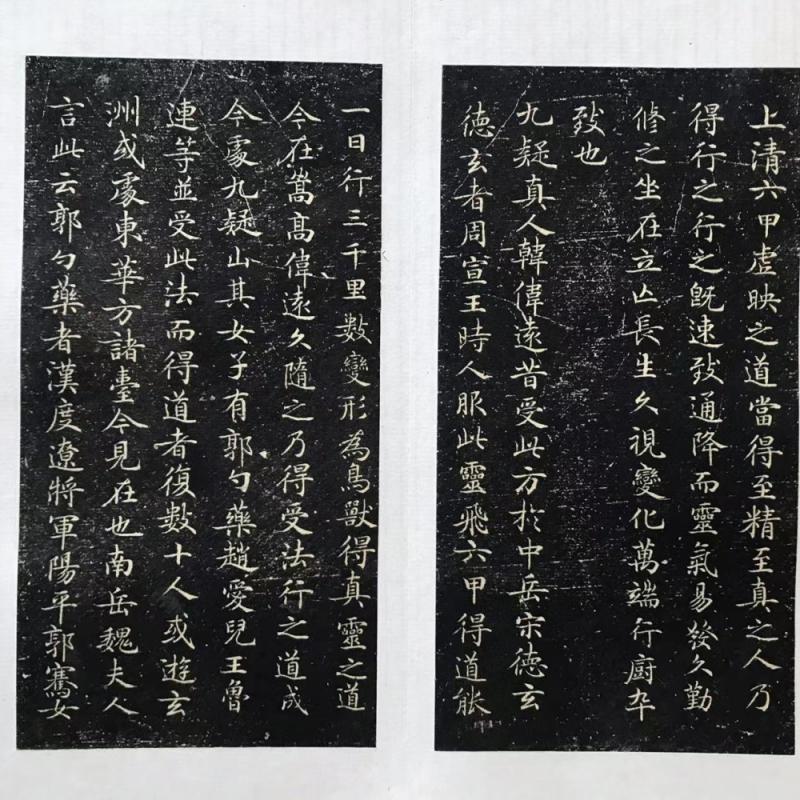 上清六甲虛映之道當得至精至真之人乃
得行之行之既速致通降而靈氣易發久勤
修之坐在立亾長生久視變化萬端行廚卒
致也
九疑真人韓偉遠昔受此方於中岳宋德玄
德玄者周宣王時人服此靈飛六甲得道能
一日行三千里數變形為鳥獸得真靈之道
今在嵩高偉遠久隨之乃得受法行之道成
今處九疑山其女子有郭勺藥趙愛兒王魯
連等並受此法而得道者復數十人或遊玄
洲或處東華方諸臺今見在也南岳魏夫人
言此云郭勺藥者漢度遼將軍陽平郭騫女